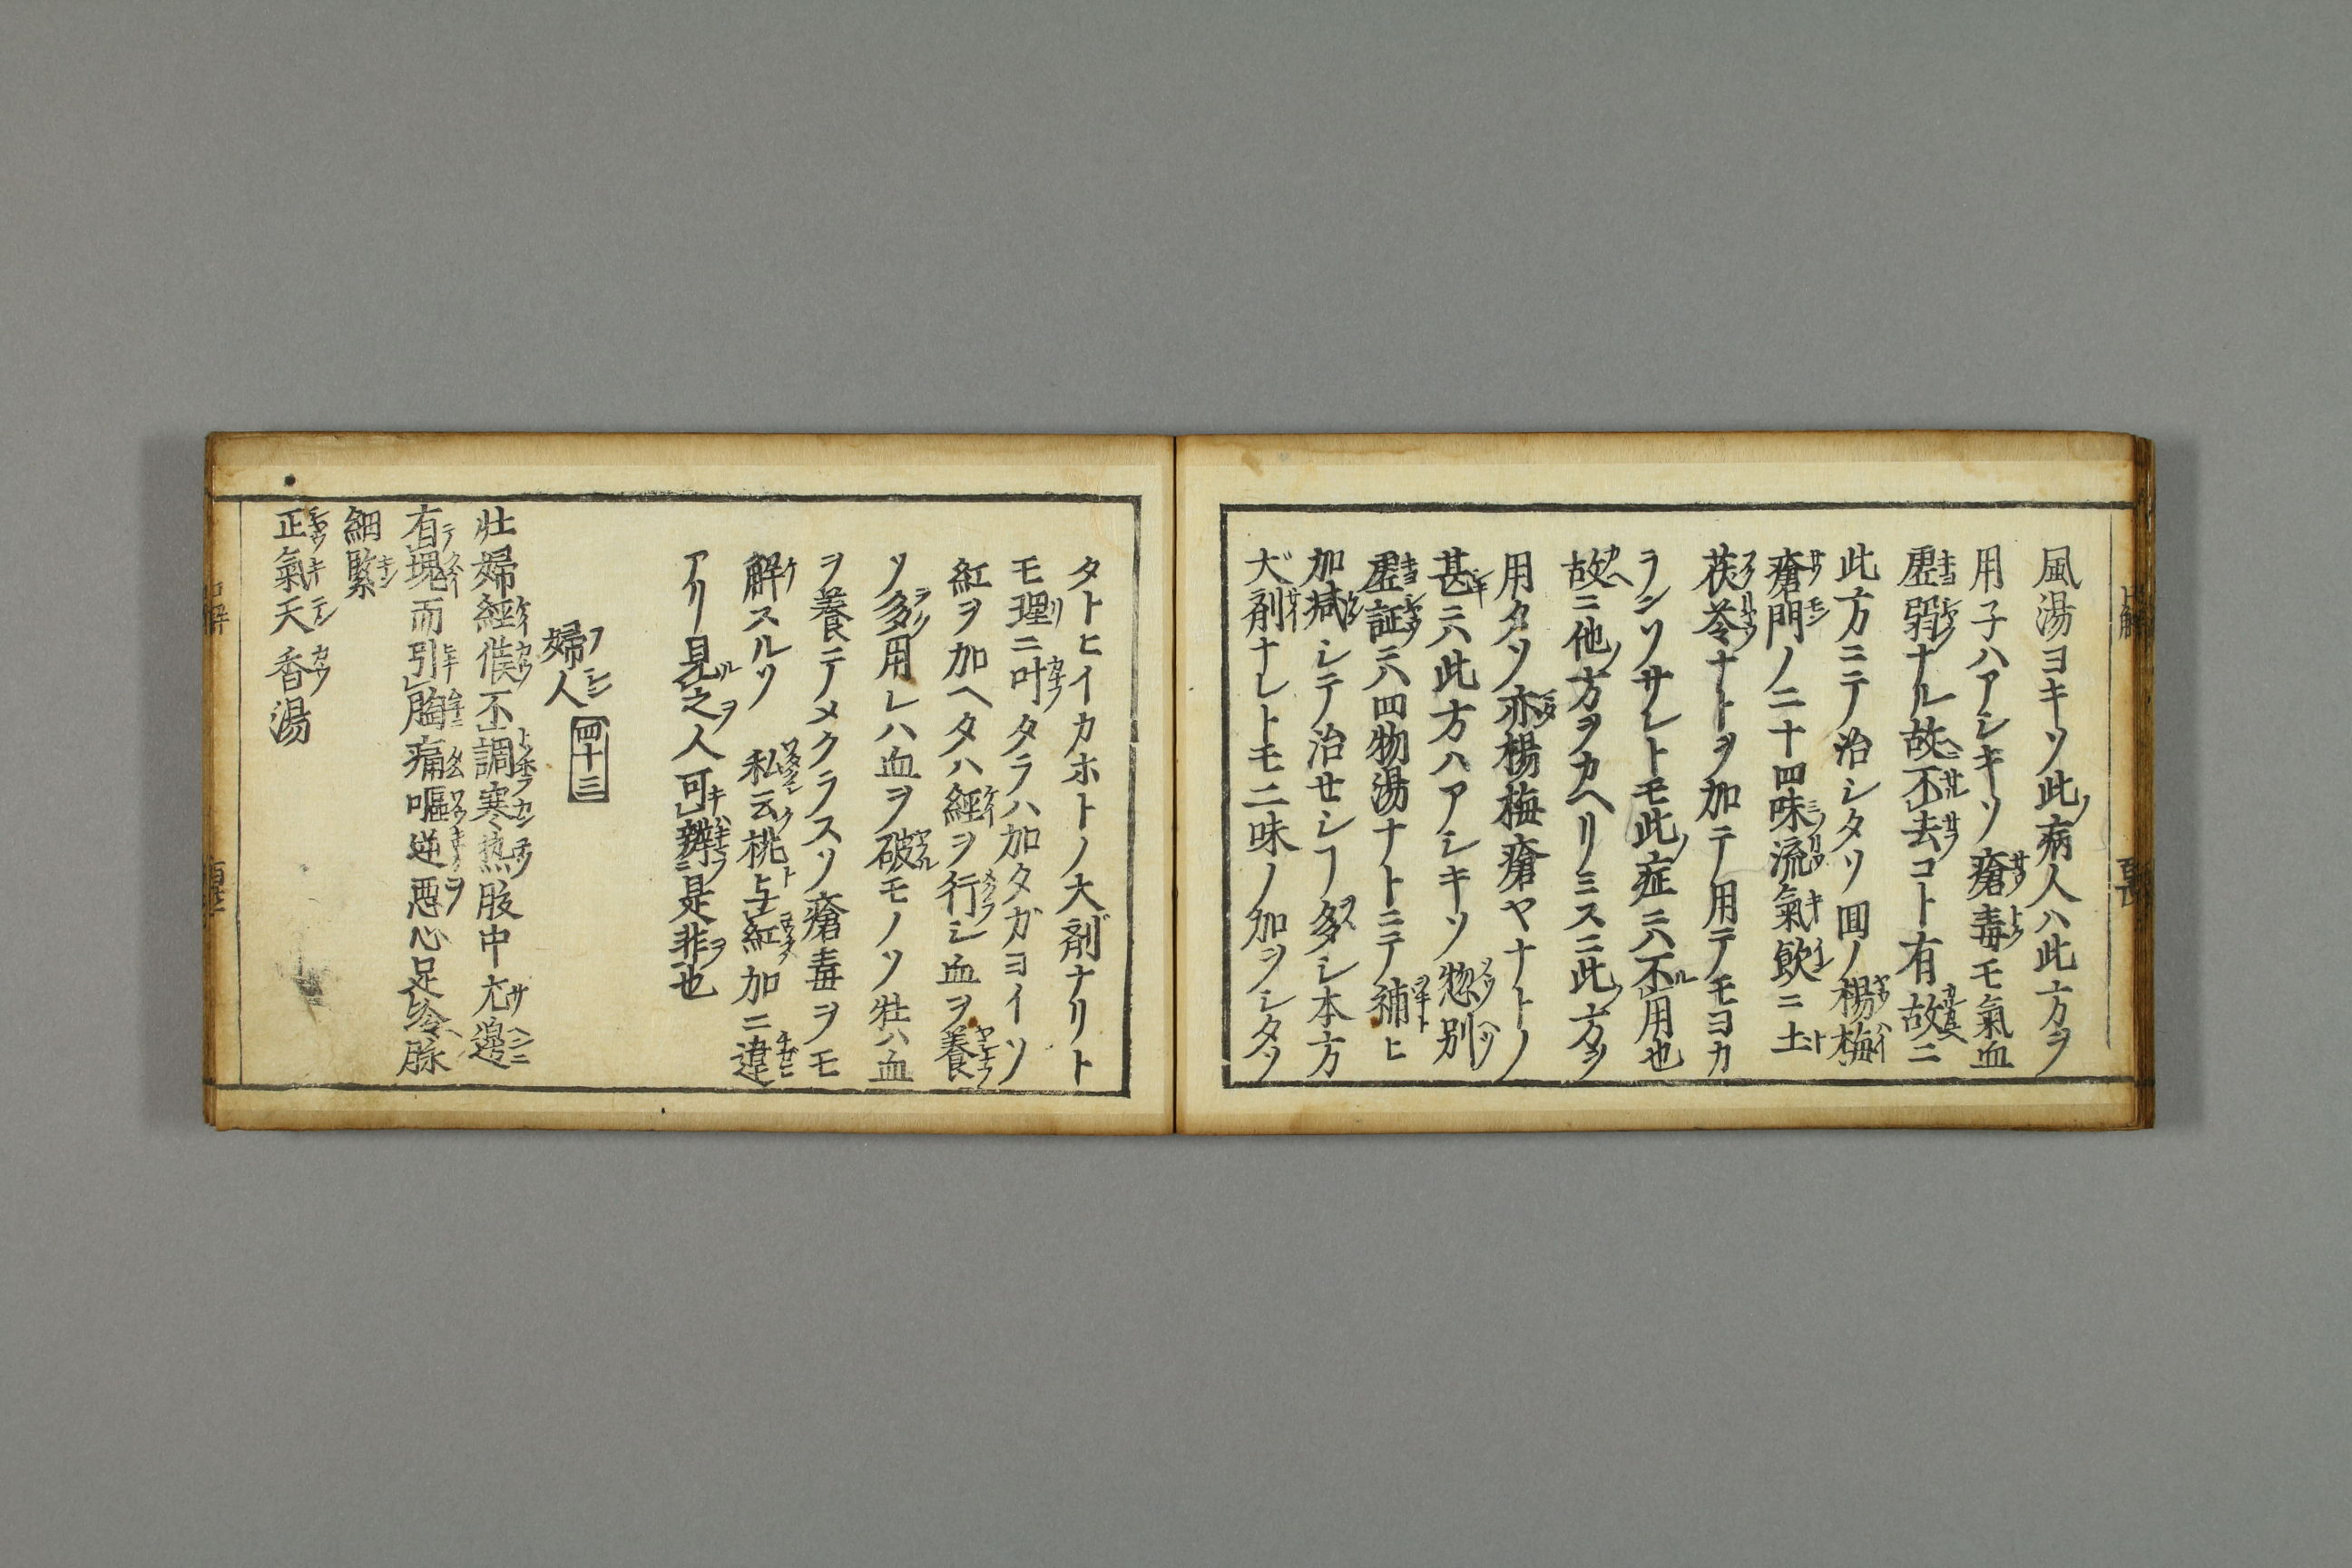 風湯ヨキソ此病人ハ此方ヲ
用子ハアシキソ瘡毒モ氣血
虚弱ナル故不去コト有故ニ
此方ニテ治シタソ囬ノ楊梅
瘡門ノ二十四味流氣飲ニ土
茯苓ナトヲ加テ用テモヨカ
ランソサレトモ此症ニハ不用也
故ニ他方ヲカヘリミス二此方ヲ
用タソ亦楊梅瘡ヤナトノ
甚ニハ此方ハアシキソ惣別
虚証ニハ四物湯ナトニテ補ヒ
加减シテ治セシヿ多シ本方
大剤ナレトモ二味ノ加ヲシタソ
タトヒイカホトノ大剤ナリト
モ理ニ叶タラハ加タガヨイソ
紅ヲ加ヘタハ經ヲ行シ血ヲ養
ソ多用レハ血ヲ破モノソ牡ハ血
ヲ養テメクラスソ瘡毒ヲモ
解スルソ 私云桃与紅加ニ違
アリ見之人可辨是非也
婦人 四十三
壮婦經候不調寒热肢中尤邊
有塊而引胸痛嘔逆惡心足冷脉
細緊
正氣天香湯